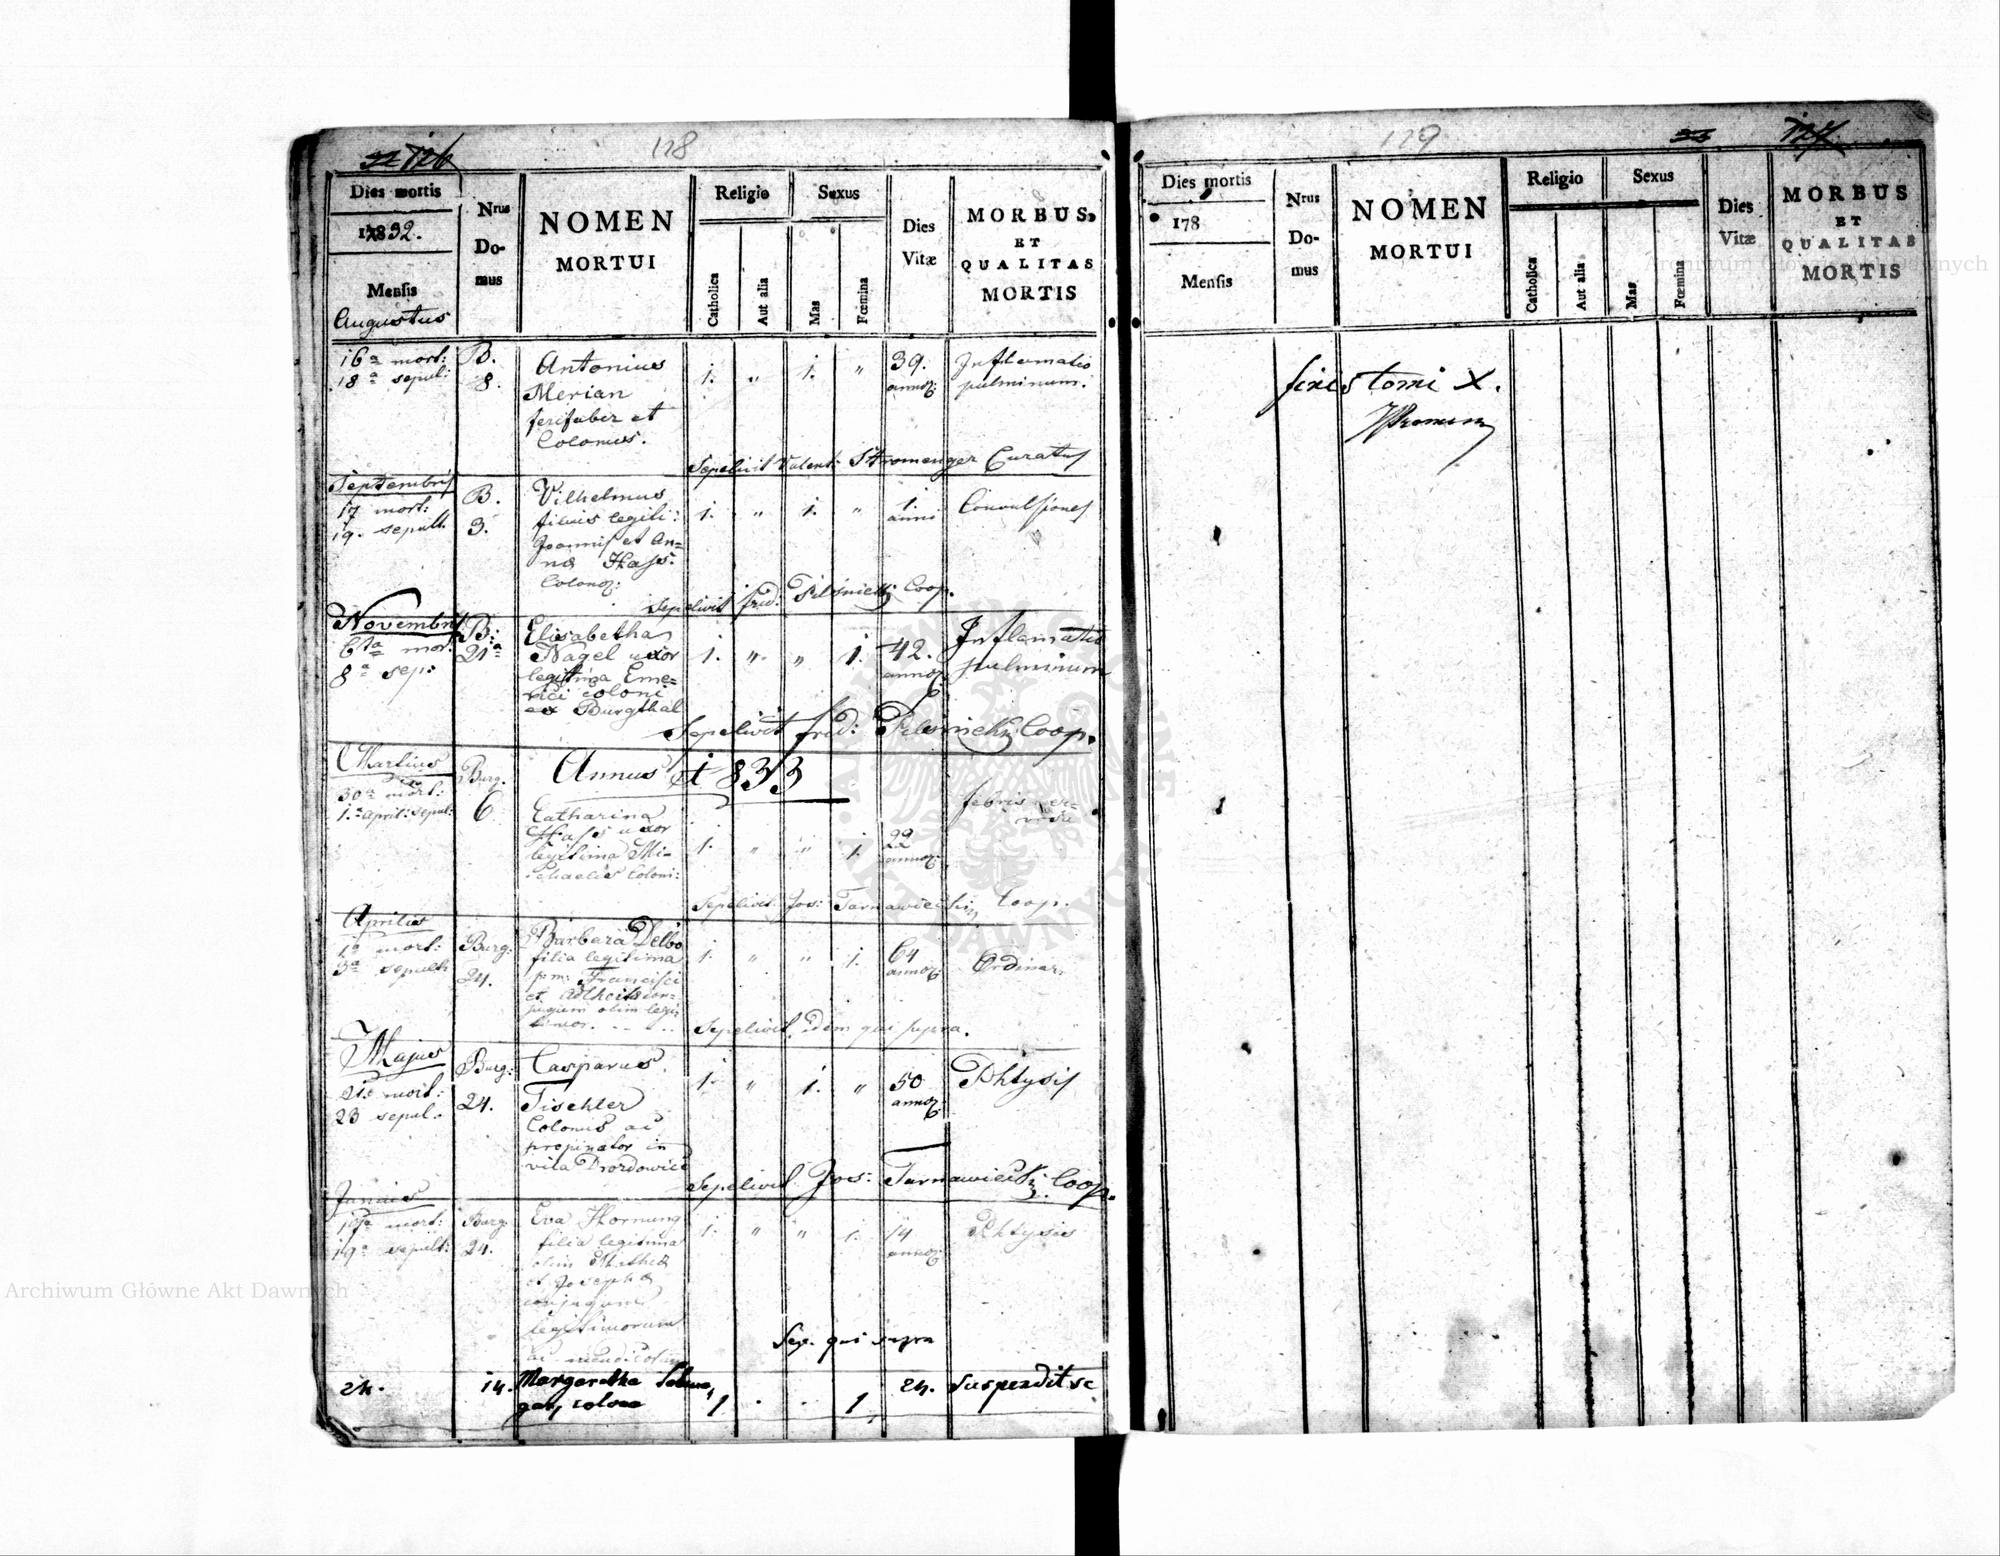 126
128
Dies mortis
1832.
Mensis
Augustus
Nrus Do- mus
NOMEN
MORTUI
Religio
Catholica
Aut alia
Sexus
Mas
Fœmina
Dies Vitæ
MORBUS
ET
QUALITAS
MORTIS
16a mort: B. Antonius 1. " 1. " 39. Inflamatio
18a sepul: 8. Merian annoz: pulminum.
ferifaber et
Colonus.
Sepelivit Valent: Stromenger Curatus
Septembris
17 mort: B. Vilhelmus 1. " 1. " 1 Convulsiones
19. sepult. 3. filius legiti: anni
Joannis et An=
na Hass:
Colonoz:
Sepelivit frid: Pilsnicki Coop.
Novembris B: Elisabetha
6ta mor: 21a Nagel uxor 1. " " 1. 42. Inflamatio
8a sep: legitima Eme= annoz: pulminum
rici coloni
ex Burgthal
Sepelivit frid: Pilsnicki Coop.
Martius Burg. Annus 1833
30a mort: 6
1a april: sepul: Catharina febris ner=
Hass uxor vosa
legitima Mi= 1. " " 1. 22
chaelis Coloni: annoz:
Sepelivit Jos: Tarnawiecki Coop.
Aprilis Barbara Delbo
1a mort: Burg: filia legitima 1. " " 1. 64 Ordinar.
3a sepult: 24. p.m: Francisci annoz:
et Adlheit con=
jugum olim legi
timor.
Sepelivit idem qui supra.
Majus Burg: Casparus 1. " 1. " 50 Phtysis
21. mort: 24. Tischler annoz:
23 sepul. Colonus ac
propinator in
villa Drozdowice
Sepelivit Jos: Tarnawiecki Coop.
Junius
17a mort: Burg Eva Hornung 1. " " 1. 14 Phtysis
19a sepult: 24. filia legitima annoz:
olim Mathia
et Josepha
conjugum
legitimorum
ac
Sep. qui supra
24. 14. Margaretha 1 . . 1 24. Suspendit se
129
127
Dies mortis
178
Mensis
Nrus Do- mus
NOMEN
MORTUI
Religio
Catholica
Aut alia
Sexus
Mas
Fœmina
Dies Vitæ
MORBUS
ET
QUALITAS
MORTIS
finis tomi X.
Archiwum Główne Akt Dawnych
Archiwum Główne Akt Dawnych
ARCHIWUM GŁÓWNE AKT DAWNYCH